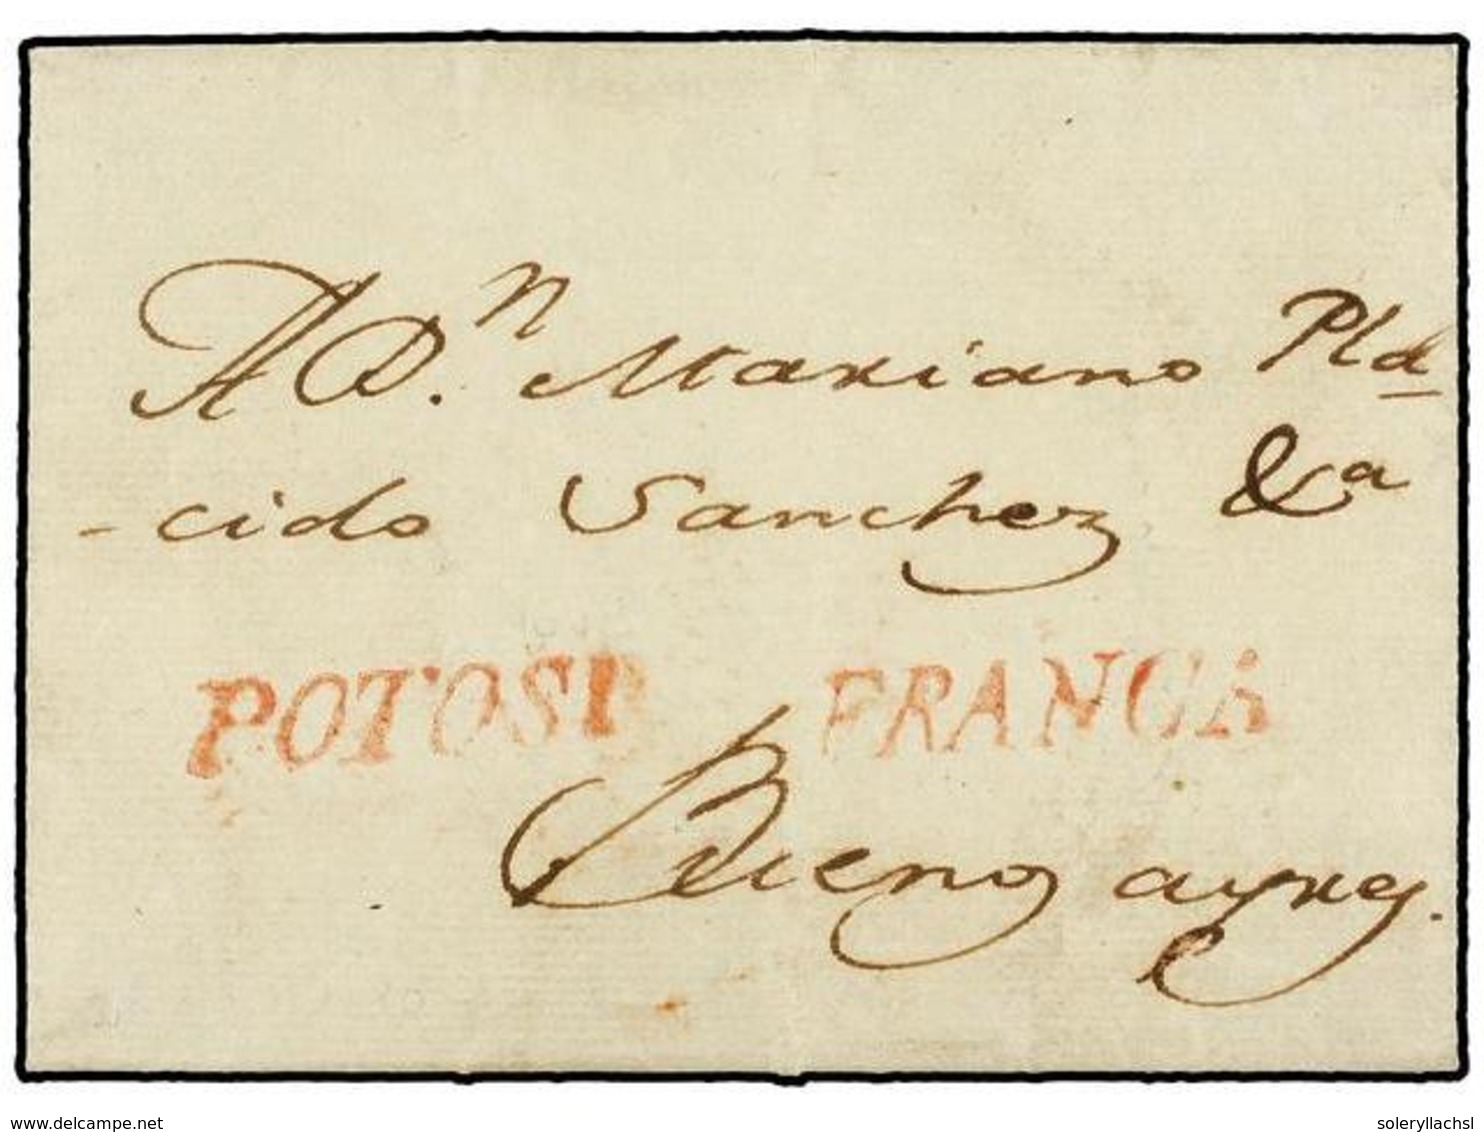 A Dn. Mariano Pla
-cido Sanchez &a
POTOSI FRANCA
Buenos ayres.
delcampe.net
soleryllachsl